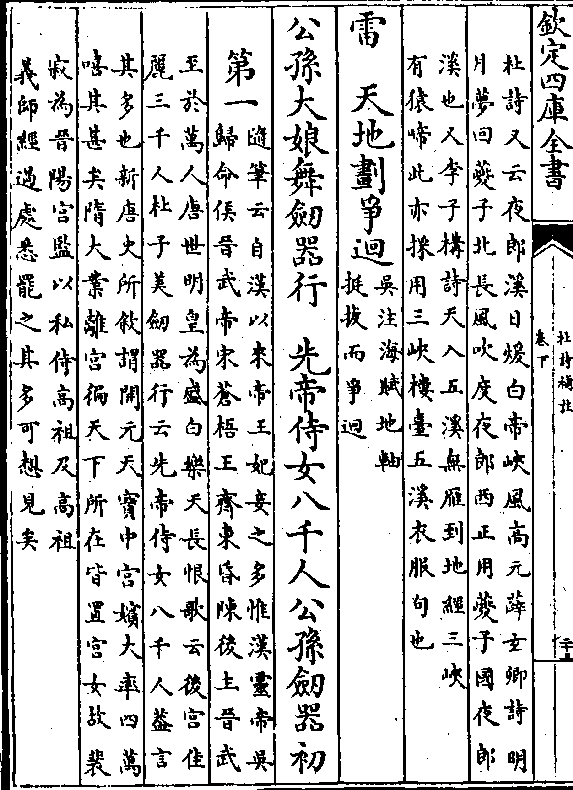 欽定四庫全書
杜詩補註
卷下
杜詩又云夜郎溪日煖白帝峽風高元薛玄卿詩明
月夢回夔子北長風吹度夜郎西正用夔子國夜郎
溪也又李子構詩天入五溪無雁到地經三峽
有猿啼此亦採用三峽樓臺五溪衣服句也
雷　天地劃爭迴
吳注海賦地軸
挺拔而爭迴
公孫大娘舞劒器行　先帝侍女八千人公孫劒器初
第一
隨筆云自漢以來帝王妃妾之多惟漢靈帝吳
歸命侯晉武帝宋蒼梧王齊東昏陳後主晉武
至於萬人唐世明皇為盛白樂天長恨歌云後宮佳
麗三千人杜子美劒器行云先帝侍女八千人葢言
其多也新唐史所敘謂開元天寳中宮嬪大率四萬
嘻其甚矣隋大業離宮徧天下所在皆置宮女故裴
寂為晉陽宮監以私侍高祖及高祖
義師經過處悉罷之其多可想見矣